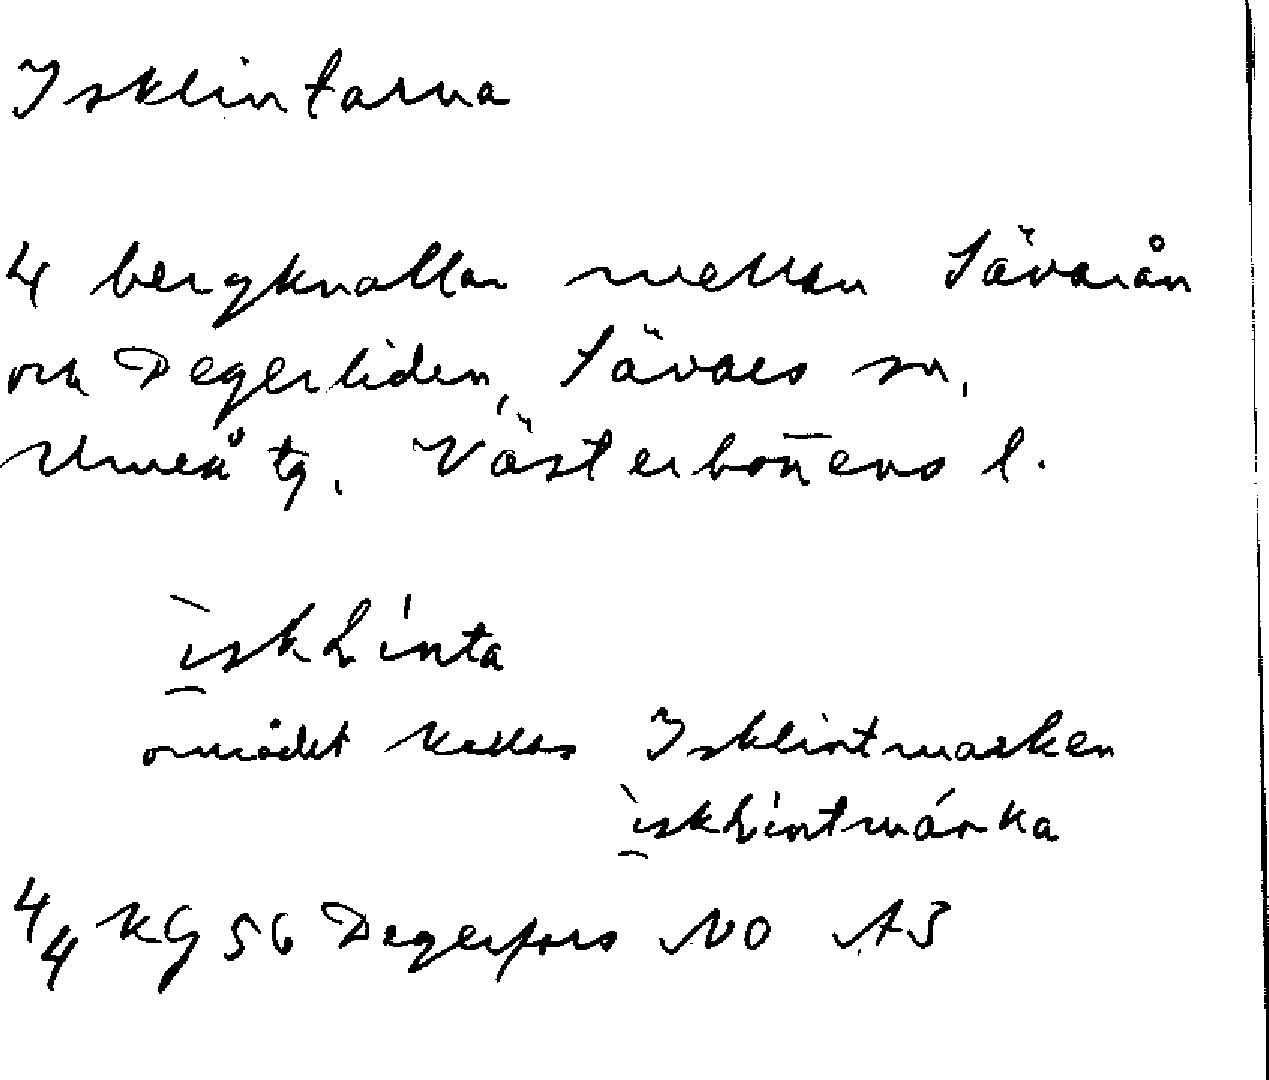 Isklintarna
4 bergknallar mellan Sävarån
och Degerliden, Sävars sn,
Umeå tg. Västerbottens l.
ìskLinta
området kallas Isklintmarken
ìskLintmárka
4/4 KG 56 Degerfors NO A3